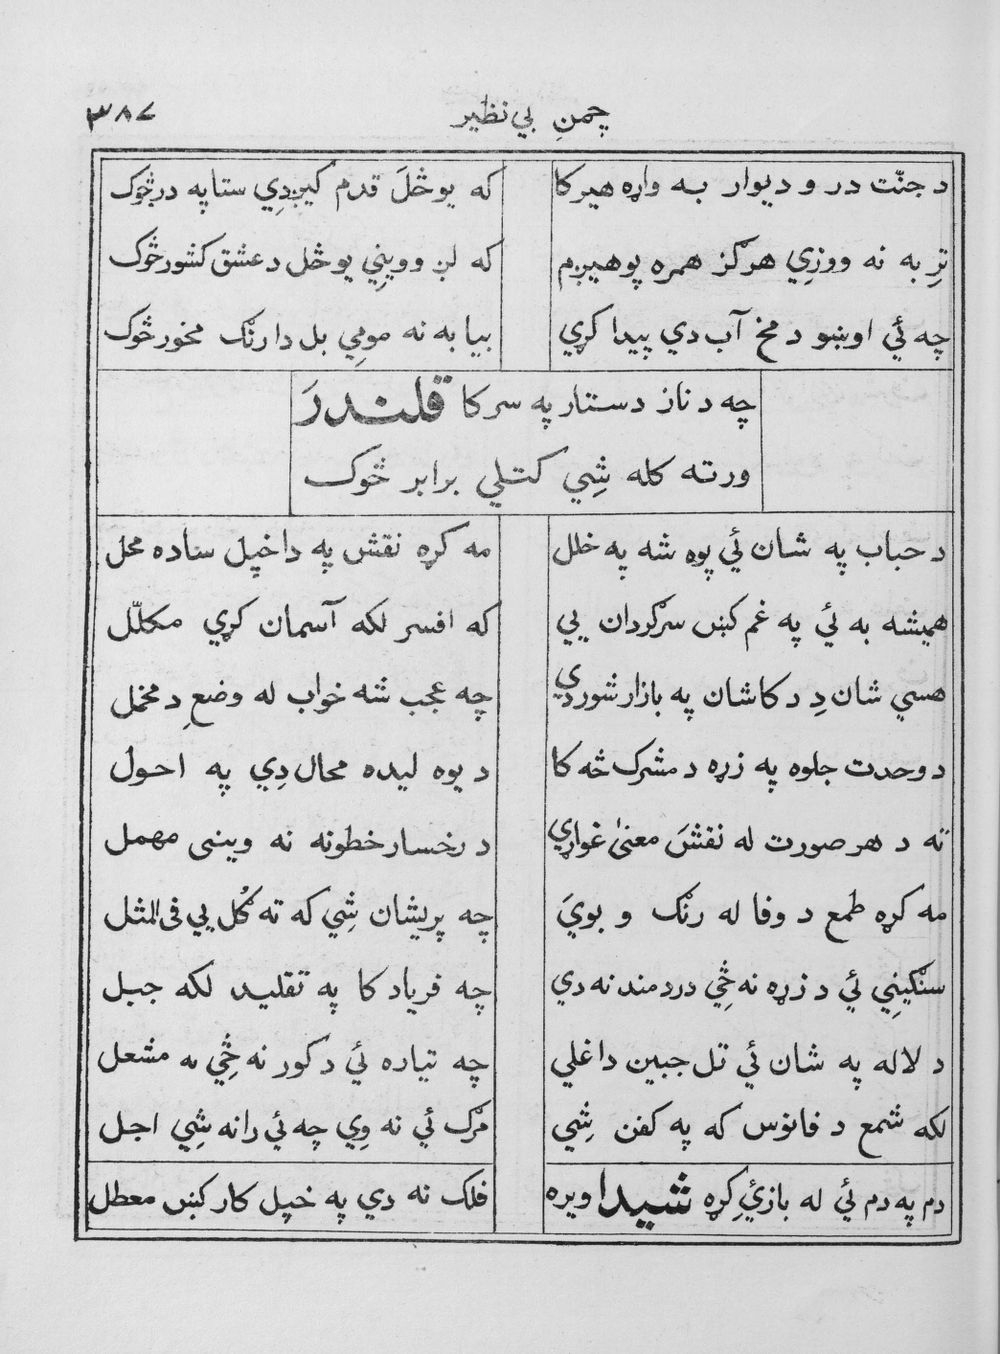 چمنِ بي نظير
۳۸۷
د جنّت در و ديوار به واړه هيرکا
که يو ځلَ قدم کيږدِي ستا په در څوک
ترِ به نه ووزِي هرګز همره پوهيږم
که لږ وويني يو ځل د عشق کشور څوک
چه ئي اوښو د مخ آب دي پيدا کړي
بيا به نه مومِي بل دا رنګ مخور څوک
چه د ناز دستار په سر کا قلندرَ
ورته کله شِي کتلي برابر څوک
د حباب په شان ئي پوه شه په خلل
مه کړه نقش په دا خپل ساده محل
هميشه به ئي په غم کښ سرګردان يي
که افسر لکه آسمان کړي مکلّل
هسي شان دِ د کاشان په بازار شور دي
چه عجب شه خواب له وضعِ د مخمل
د وحدت جلوه په زړه د مشرک څه کا
د يوه ليده محال دِي په احول
ته د هر صورت له نقشَ معنیٰ غواړي
د رخسار خطونه نه وينی مهمل
مه کړه طمع د وفا له رنګ و بويَ
چه پريشان شِي که ته ګُل يي فی المثل
سنګيني ئي د زړه نه ځِي دردمند نه دي
چه فرياد کا په تقليد لکه جبل
د لاله په شان ئي تل جبين داغلي
چه تياره ئي د کور نه ځِي په مشعل
لکه شمع د فانوس که په کفن شِي
مرګ ئي نه وِي چه ئي را نه شِي اجل
دم په دم ئي له بازيِ کړه شيدا ويره
فلک نه دي په خپل کار کښ معطل